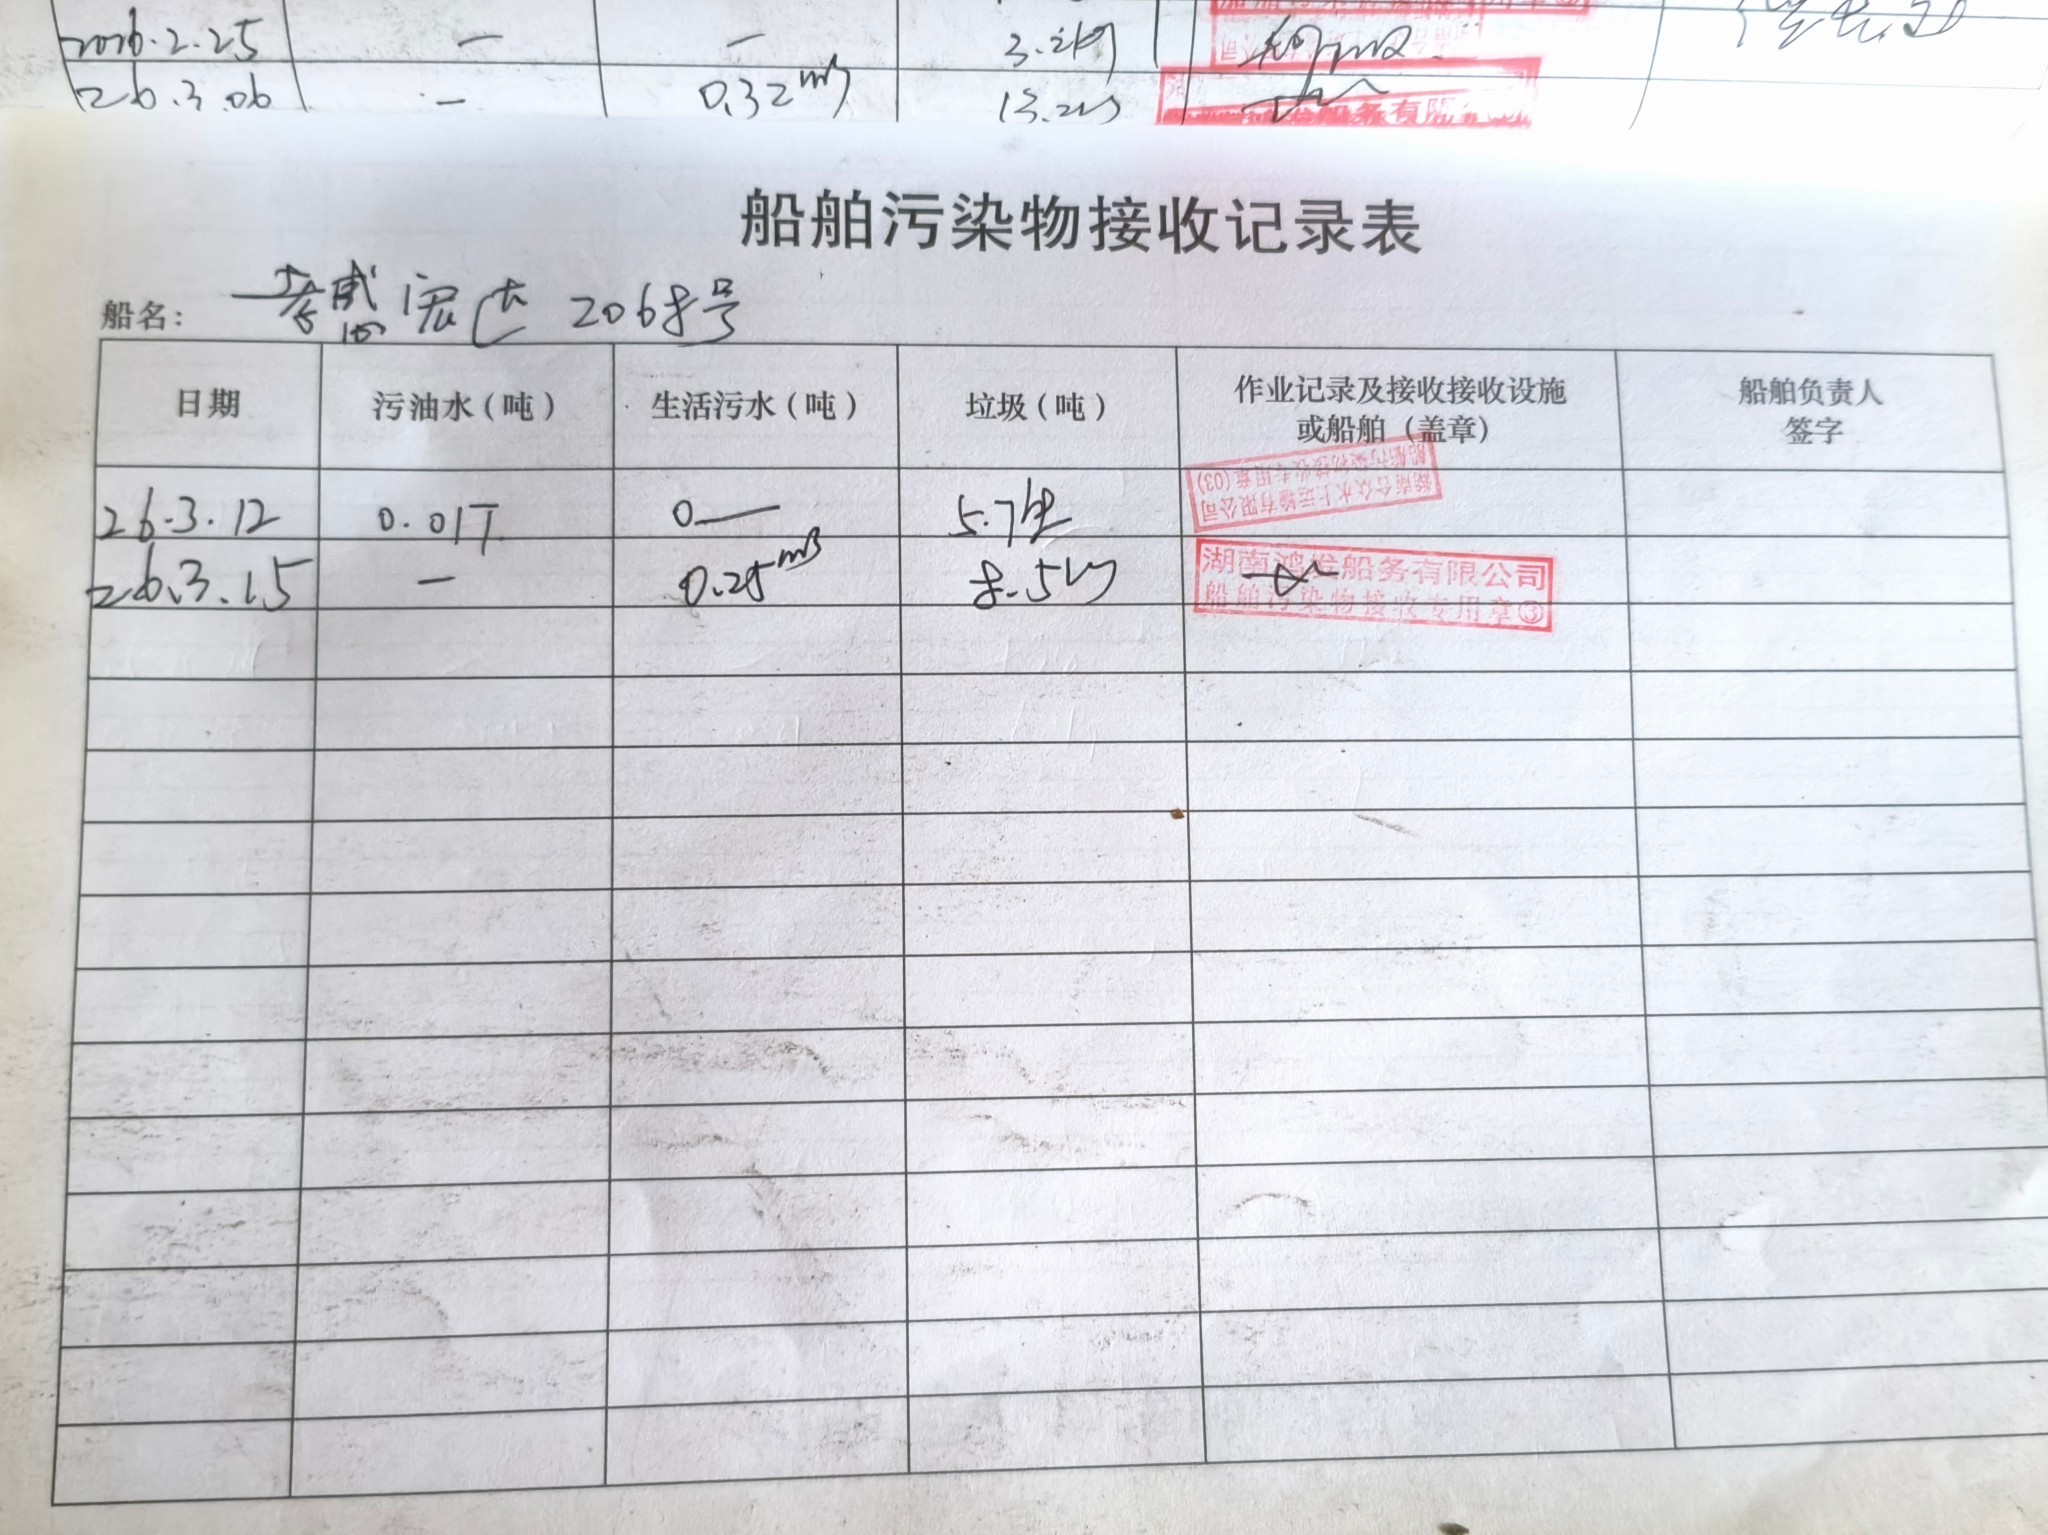 2026.2.25 — — 3.2kg
26.3.06 — 0.32m³ 13.2kg
船务有限
船舶污染物接收记录表
船名： 宏达2068号
日期 污油水（吨） 生活污水（吨） 垃圾（吨） 作业记录及接收接收设施或船舶（盖章） 船舶负责人签字
26.3.12 0.01T 0— 5.7kg
湖南合众水上运输有限公司
船舶污染物接收专用章(03)
26.3.15 — 0.25m³ 8.5kg
湖南鸿发船务有限公司
船舶污染物接收专用章③